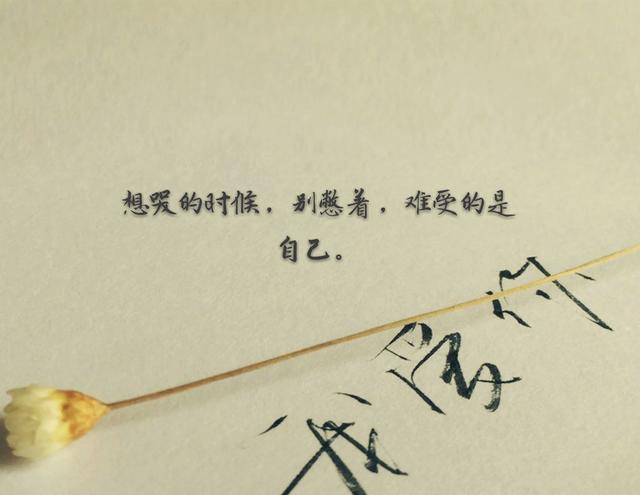 想哭的时候，别憋着，难受的是
自己。
我爱你